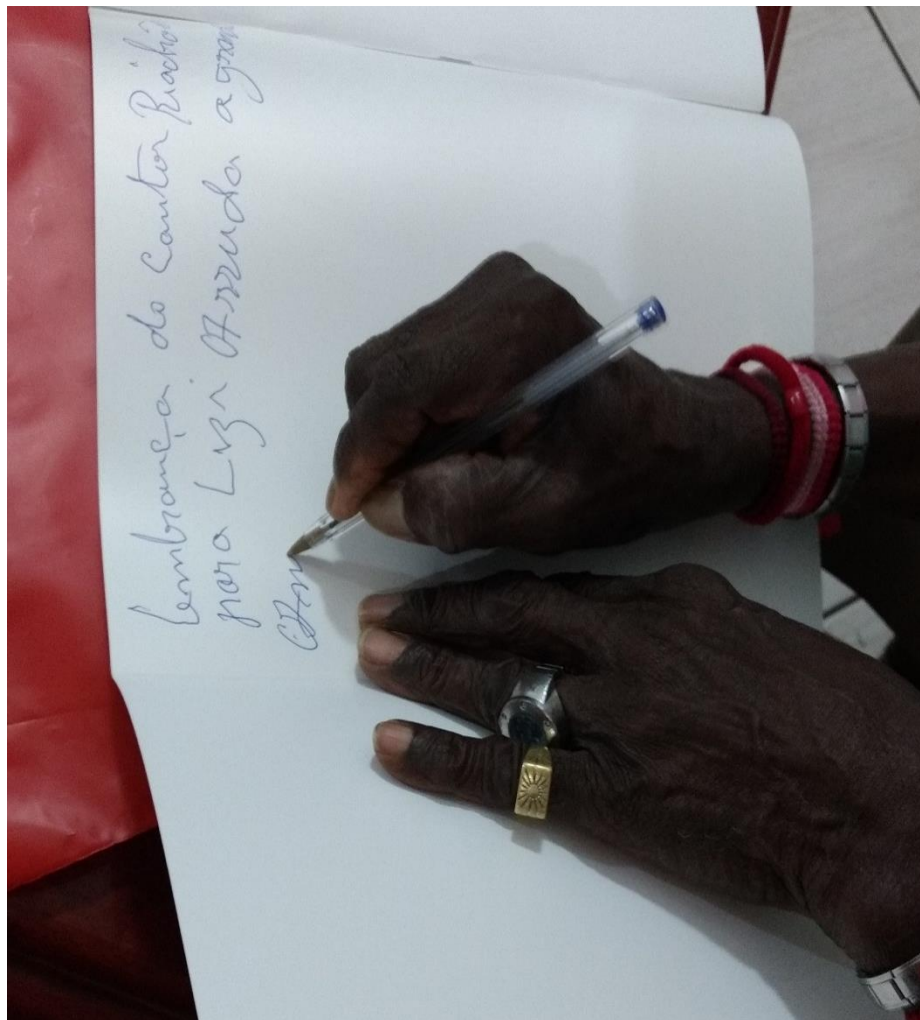 Lembrança do Cantor Riachão
para Luzi Arruda a gran
Am